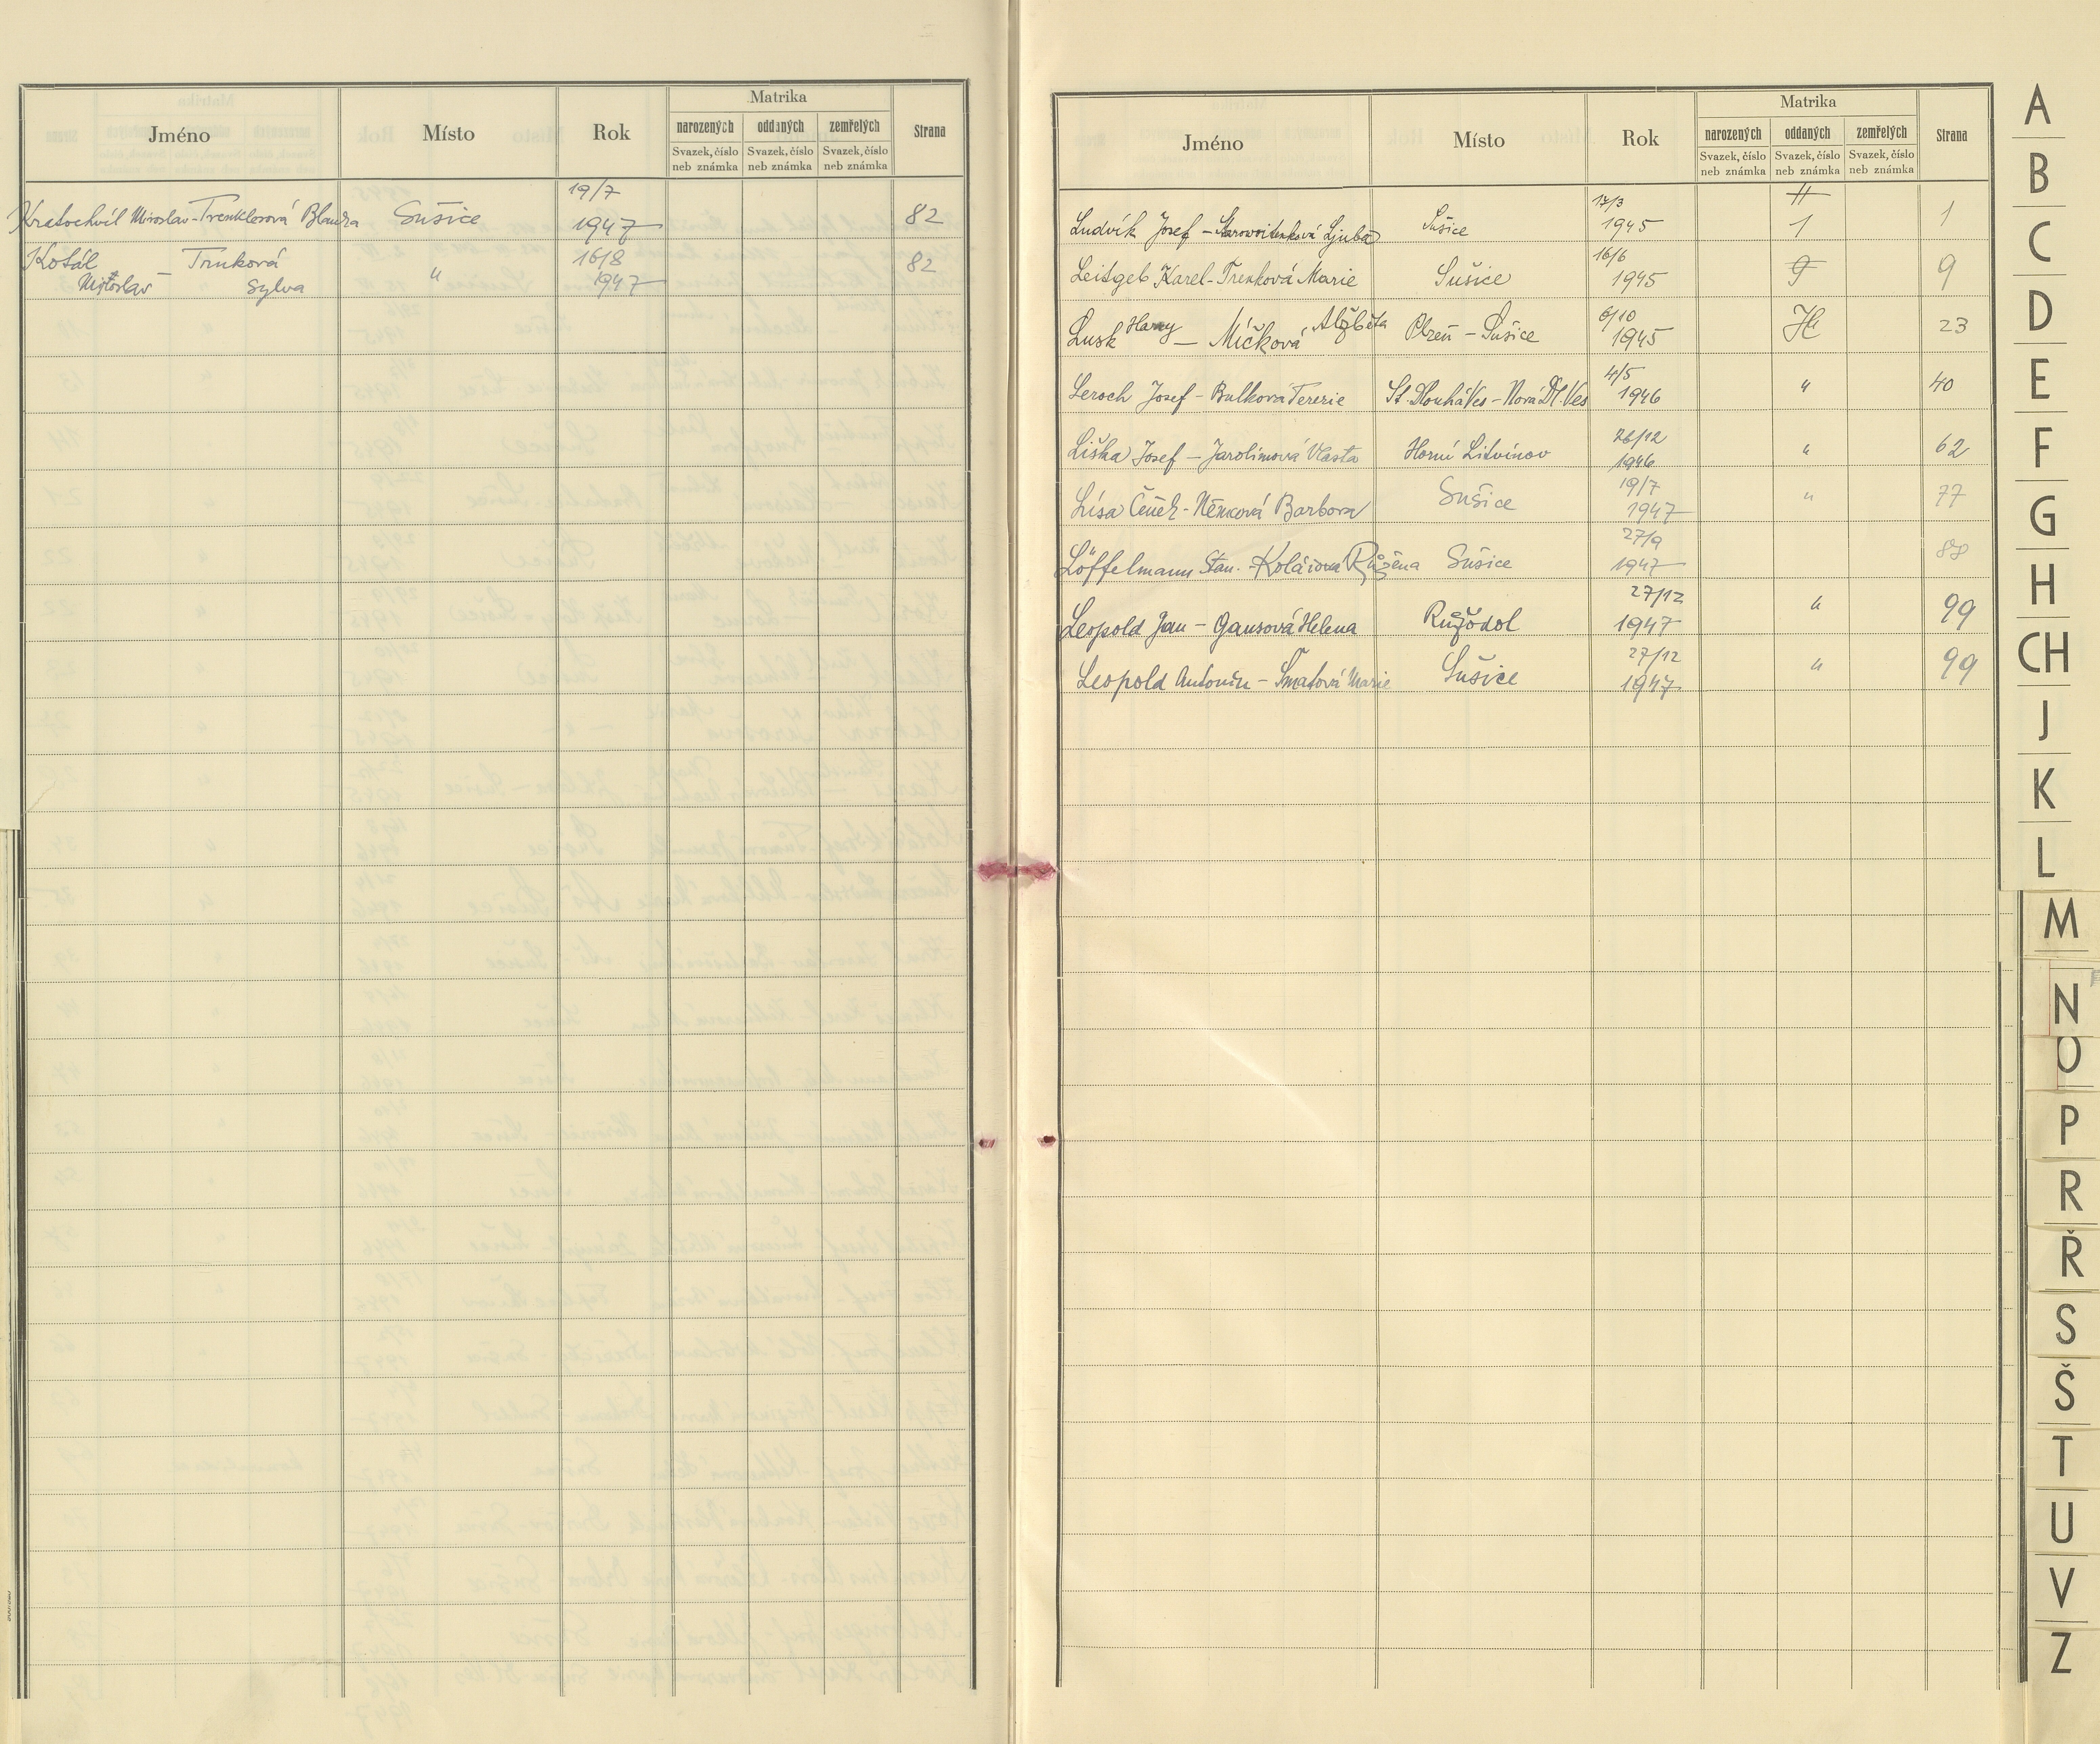 Matrika
Jméno Místo Rok narozených oddaných zemřelých Strana
Svazek, číslo Svazek, číslo Svazek, číslo
neb známka neb známka neb známka
19/7
Kratochvíl Miroslav - Trenklerová Blanka Sušice 1947 82
Kotál — Trnková 16/8 82
Miroslav Sylva " 1947
Matrika
Jméno Místo Rok narozených oddaných zemřelých Strana
Svazek, číslo Svazek, číslo Svazek, číslo
neb známka neb známka neb známka
17/3 H
Ludvík Josef - Ljuba Sušice 1945 1 1
16/6
Leitgeb Karel - Trenková Marie Sušice 1945 9 9
6/10
Lusk Harry — Míčková Alžběta Plzeň - Sušice 1945 H 23
4/5
Leroch Josef - Bulková Terezie St. Dlouhá Ves - Nová Dl. Ves 1946 " 40
26/12
Liška Josef - Jarolimová Vlasta Horní Litvínov 1946 " 62
19/7
Lísa Čeněk - Němcová Barbora Sušice 1947 " 77
27/9
Löffelmann Stan. - Kolářová Růžena Sušice 1947 88
27/12
Leopold Jan - Gausová Helena Růžodol 1947 " 99
27/12
Leopold Antonín - Šmatová Marie Sušice 1947 " 99
A
B
C
D
E
F
G
H
CH
J
K
L
M
N
O
P
R
Ř
S
Š
T
U
V
Z